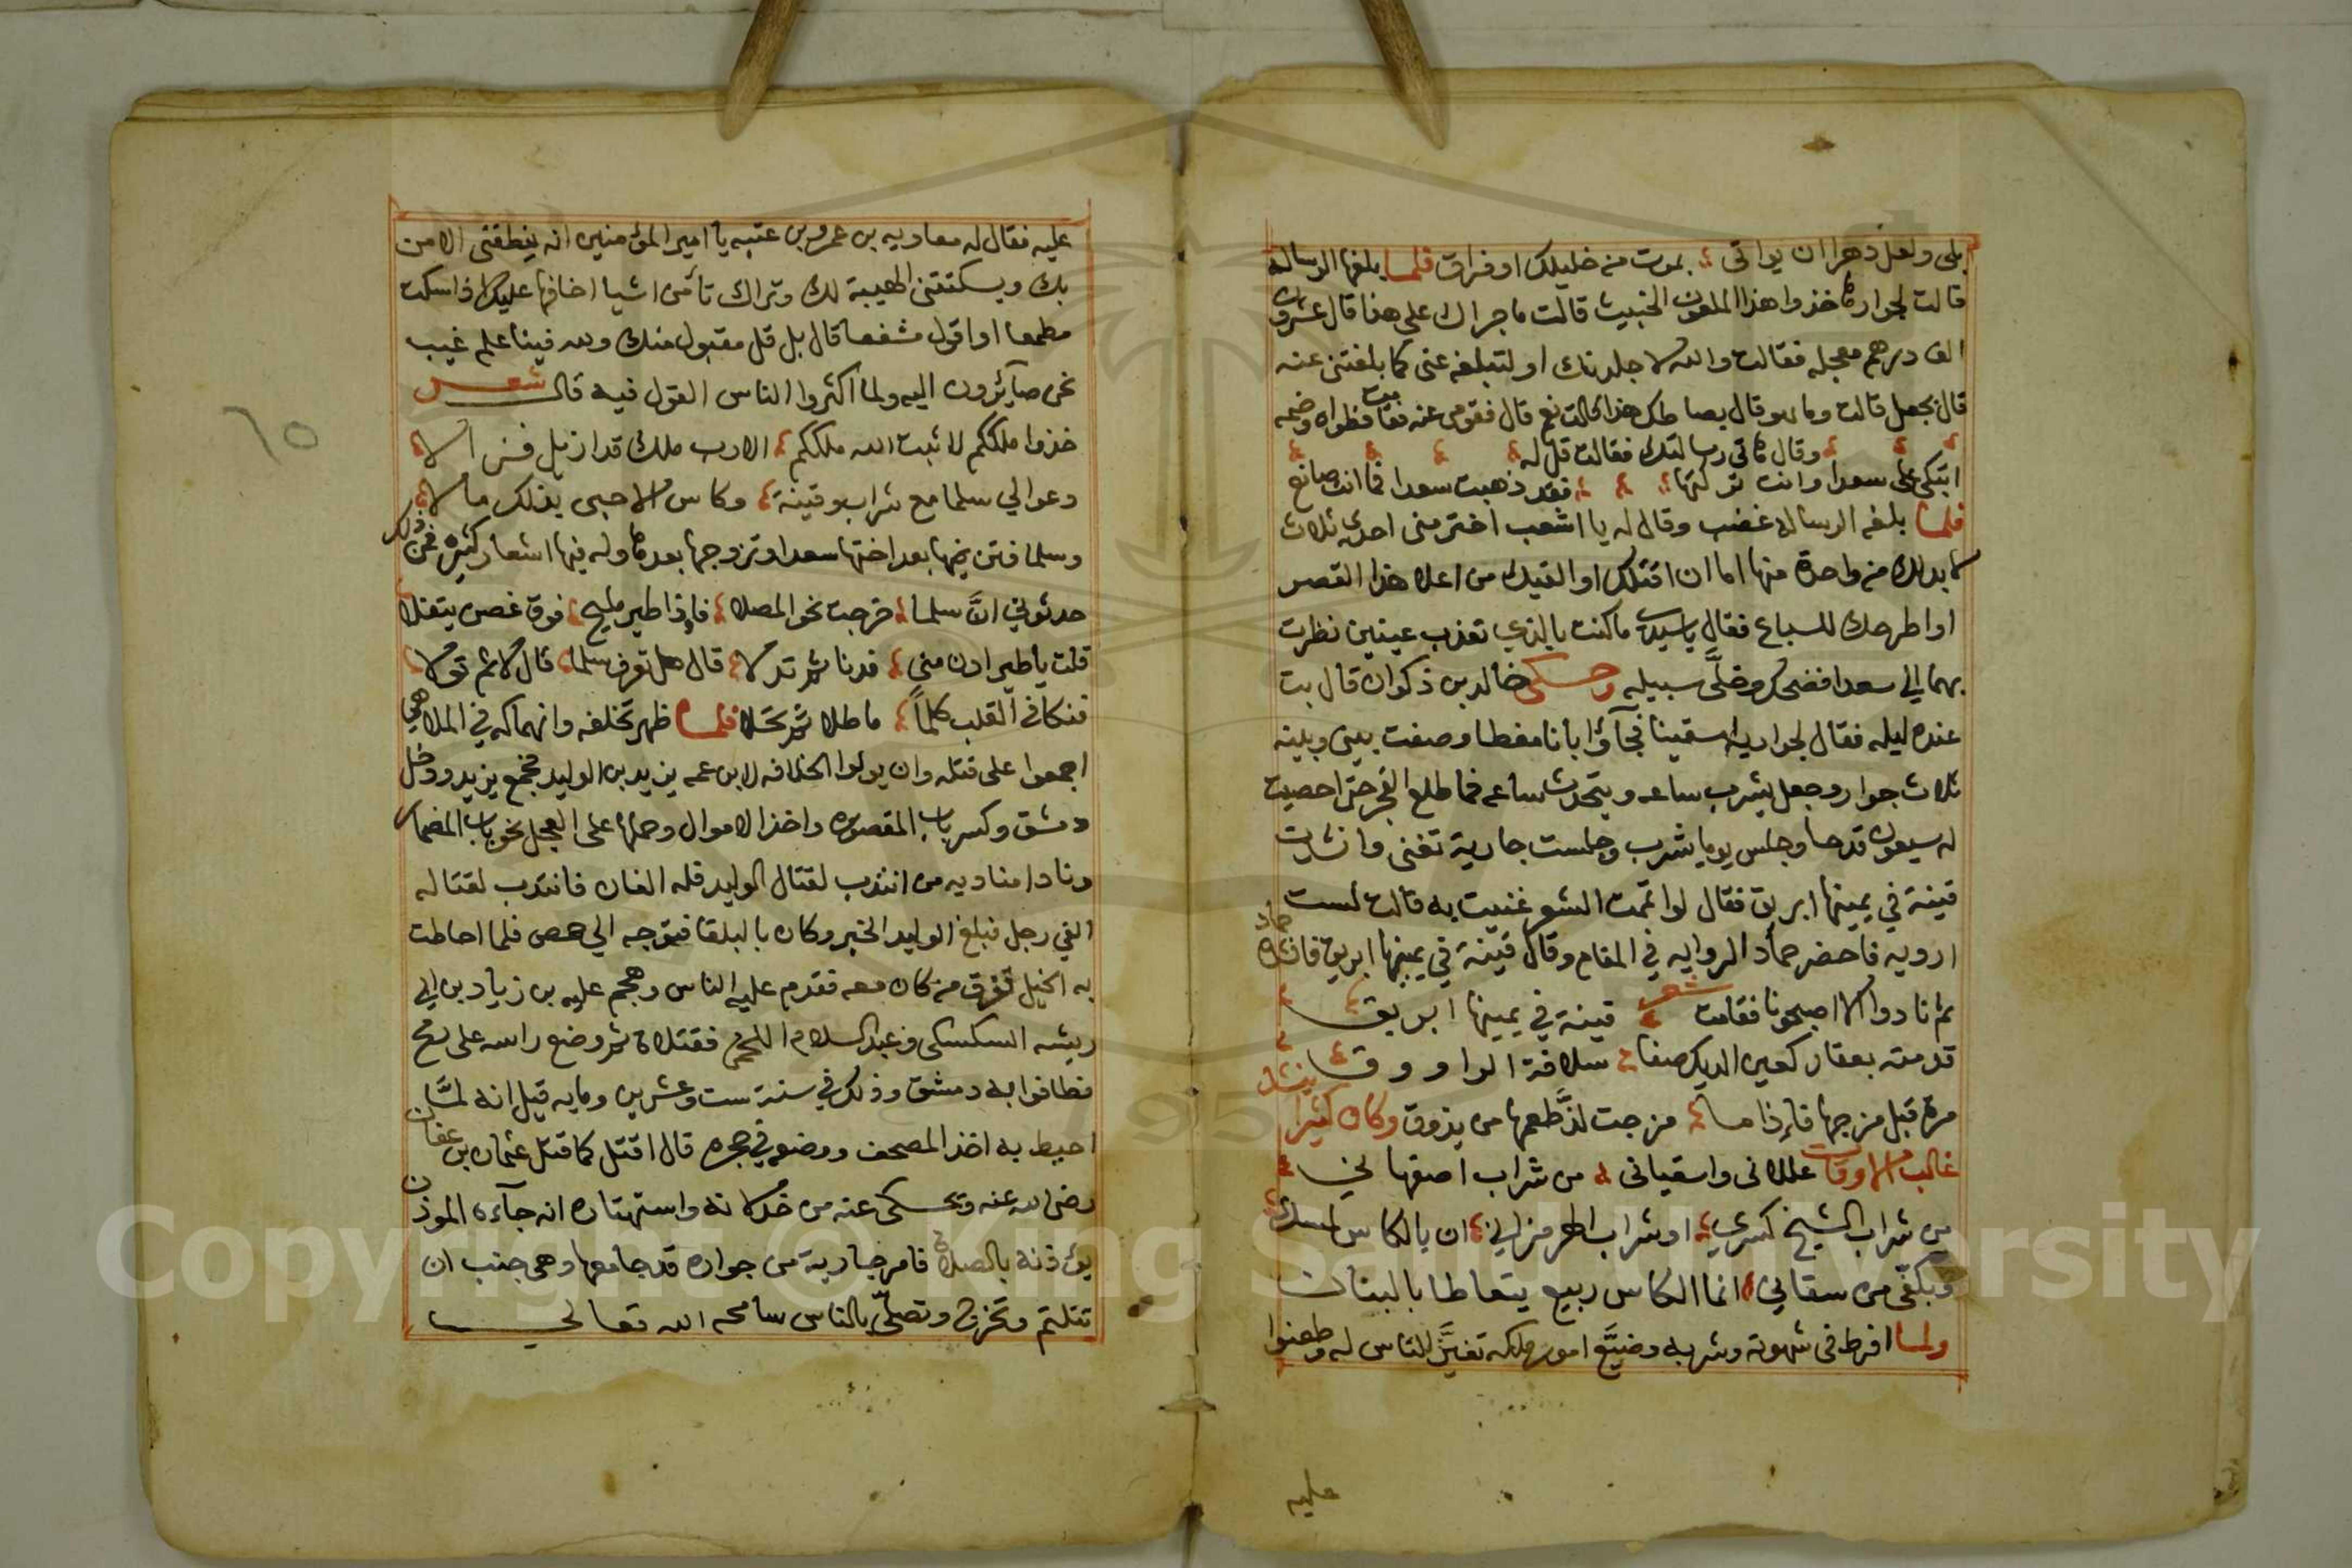 بلى ولعل دهرا ان يواتى بموت من خليلك او فراق فلما بلغها الرسالة
قالت لجوارها خذوا هذا الملعون الخبيث قالت ما جراك على هذا قال عشرون
الف درهم معجله فقالت والله لاجلدنك او لتبلغه عنى كما بلغتنى عنه
قال بجعل قالت وما هو قال بساطك هذا قالت نعم قال فقومى عنه فقامت فطواه وضمه
وقال هاتى رسالتك فقالت قل له
اتبكى على سعدا وانت تركتها فقد ذهبت سعدا فما انت صانع
فلما بلغه الرسالة غضب وقال له يا اشعب اختر منى احدى ثلاث
لا بد لك من واحدة منها اما ان اقتلك او القيك من اعلا هذا القصر
او اطرحك للسباع فقال يا سيدى ما كنت بالذي تعذب عينين نظرت
بهما الي سعدا فضحك وخلَّى سبيله وحكى خالد بن ذكوان قال بت
عنده ليله فقال لجواريه اسقينا فجآؤا بانا مغطا وصفت بينى وبينه
ثلاث جوار وجعل يشرب ساعه ويتحدث ساعه فما طلع الفجر حتى احصيت
له سبعون قدحا وجلس يوما يشرب وجلست جارية تغنى وانشدت
قينة في يمينها ابريق فقال لو اتممت الشعر غنيت به قالت لست
ارويه فاحضر حماد الروايه في المقام وقال قينة في يمينها ابريق فانشده حماد
ثم نادوا الا اصبحونا فقامت شعر قينة في يمينها ابريق
قدمته بعقار كعين الديك صفا سلافة الراووق
مرة قبل مزجها فاذا ما مزجت لذَّ طعمها من يذوق وكان كثيرا ينشد
غالب الاوقات عللانى واسقيانى من شراب اصفهانى
من شراب الشيخ كسري او شراب الهرمزاني ان بالكاس لمسكا
وبكفّى من سقاني انما الكاس ربيع يتعاطا بالبنان
ولما افرط فى شهوته وشربه وضيَّع امور ملكه تغيَّر للناس له وطعنوا
عليه
عليه فقال له معاويه بن عمرو بن عتبه يا امير المؤمنين انه ينطقنى الامن
بك ويسكتتنى الهيبة لك وتراك تأمن اشيا اخافها عليك افاسكت
مطمعا او اقول مشفعا قال بل قل مقبول منك ولله فينا علم غيب
نحن صآئرون اليه ولما اكثروا الناس القول فيه قال شعر
خذوا ملككم لا ثبت الله ملككم الا رب ملك قد ازيل فـ الا
دعوا لي سلما مع شراب وقينة وكاس الا حبى بذلك مالا
وسلما فتن بها بعد اختها سعدا وتزوجها بعدها وله فيها اشعار كثيره فمن ذلك
حدثوني انَّ سلما خرجت نحو المصلا فاذا طير مليح فوق غصن يتفلا
قلت يا طير ادن منى فدنا ثم تدلا قال هل تعرف سلما قال لا ثم تولا
فنكا في القلب كلماً ما طلا ثم تحلا فلما ظهر تخلفه وانهماكه في الملاهي
اجمعوا على قتله وان يولوا الخلافه لابن عمه يزيد بن الوليد فجمع يزيد ودخل
دمشق وكسر باب المقصوره واخذ الاموال وحملها على العجل نحو باب المضمار
ونادا مناديه من انتدب لقتال الوليد فله الفان فانتدب لقتاله
الفي رجل فبلغ الوليد الخبر وكان بالبلقا فتوجه الي حمص فلما احاطت
به الخيل تفرق من كان معه فقدم عليه الناس وهجم عليه بن زياد بن ابي
ريشه السكسكى وعبد السلام اللخمى فقتلاه ثم وضع راسه على رمح
فطافوا به دمشق وذلك في سنة ست وعشرين ومايه قيل انه لمَّا
احيط به اخذ المصحف ووضعه في حجره قال اقتل كما قتل عثمان بن عفان
رضى الله عنه وتحكى عنه من واستهتاره انه جآءه الموذن
يؤذنه بالصلاة فامر جارية من جواره قد جامعها وهى جنب ان
تتلثم وتخرج وتصلّى بالناس سامحه الله تعالى
٦٥
Copyright © King Saud University
1957